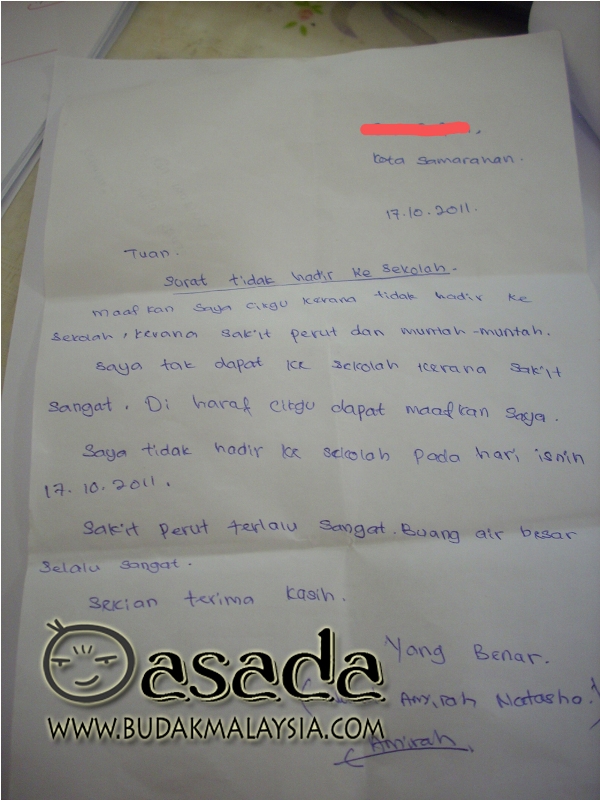 Kota Samarahan.
17.10.2011.
Tuan.
Surat tidak hadir ke sekolah.
maafkan saya cikgu kerana tidak hadir ke
sekolah, kerana sakit perut dan muntah-muntah.
saya tak dapat ke sekolah kerana sakit
sangat. Di haraf cikgu dapat maafkan saya.
Saya tidak hadir ke sekolah pada hari isnin
17.10.2011.
Sakit perut terlalu sangat. Buang air besar
selalu sangat.
Sekian terima kasih.
Yang Benar.
Amirah Natasha.)
Amirah.
asada
WWW.BUDAKMALAYSIA.COM